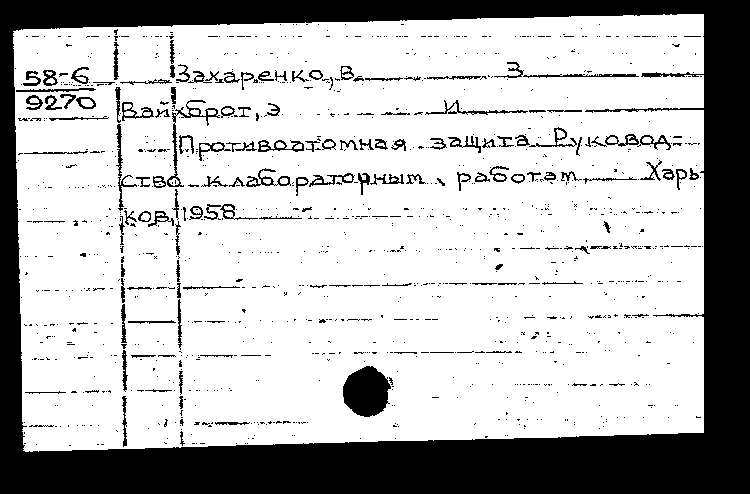 58-6 Захаренко, В. З
9270 Вайхброт, Э И
Противоатомная защита. Руковод-
ство к лабораторным работам. Харь-
ков, 1958